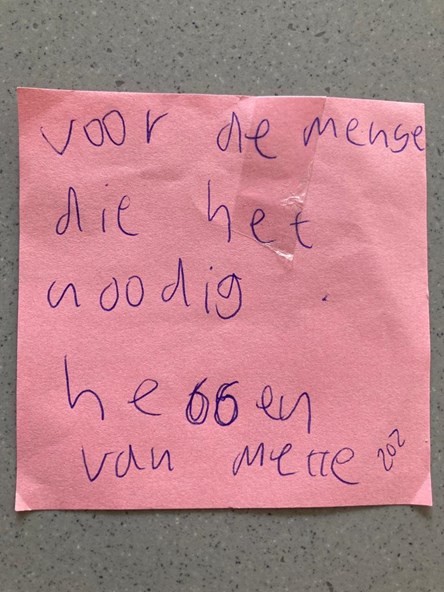 voor de mense
die het
noodig
hebben
van Mette 202